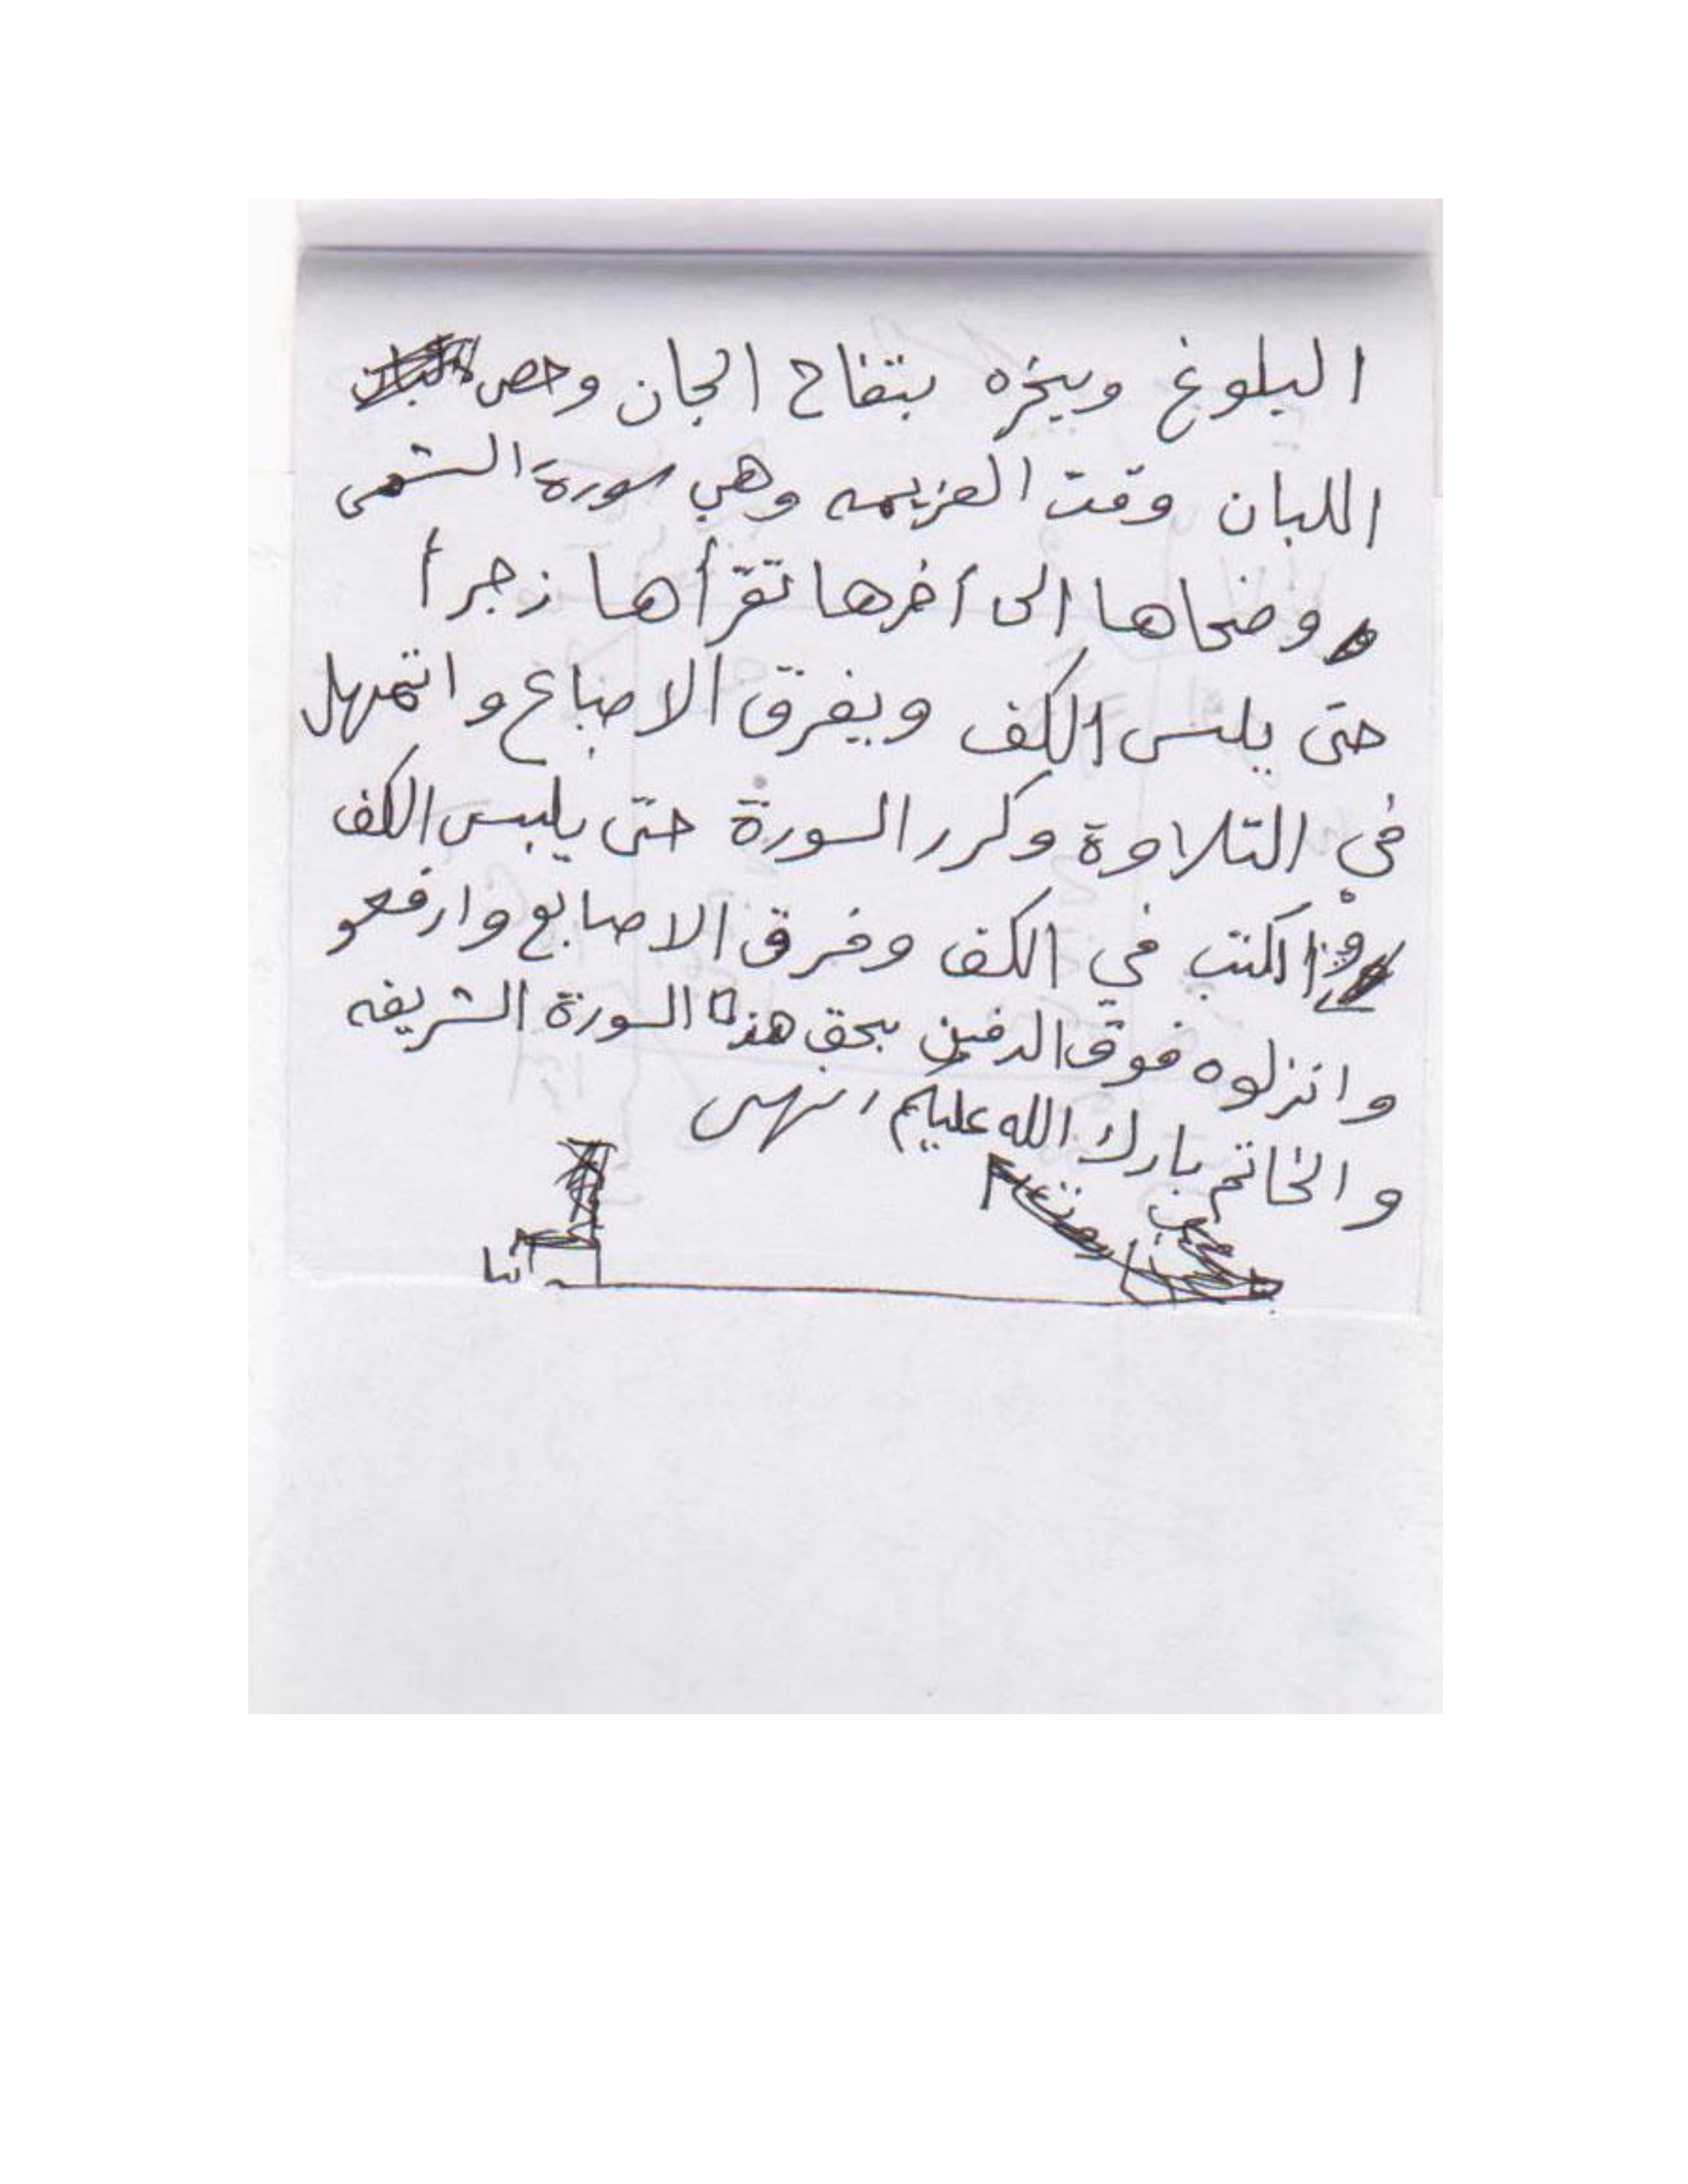 البلوغ ويبخره بتفاح الجان وحصى
اللبان وقت العزيمه وهي سورة الشمس
وضحاها الى أخرها تقرأها زجرأ
حتى يلبس الكف ويفرق الاصباع واتمهل
في التلاوة وكرر السورة حتى يلبس الكف
واكتب في الكف وفرق الاصابع وارفعو
وانزلوه فوق الدفين بحق هذه السورة الشريفه
والخاتم بارك الله عليكم انتهى